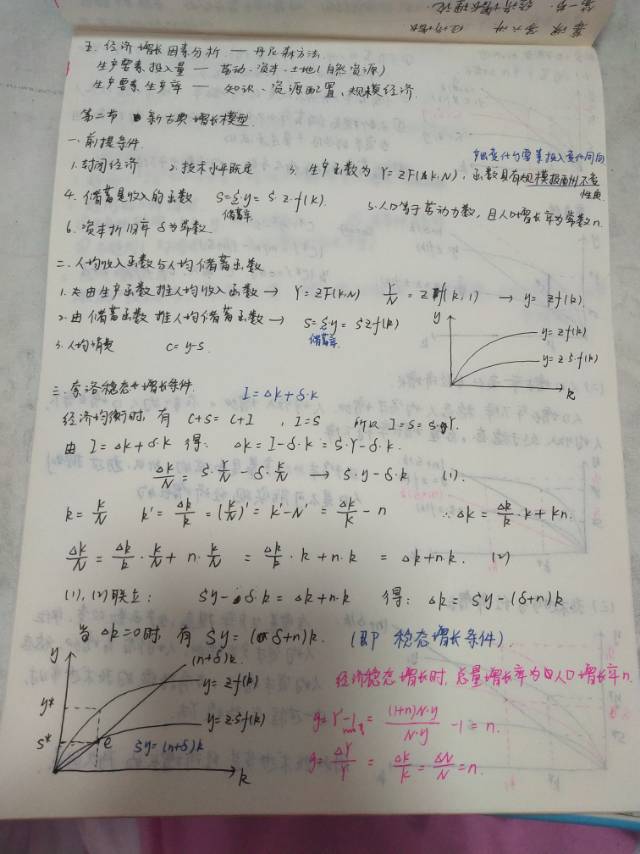 五. 经济增长因素分析 — 丹尼森方法
生产要素投入量 — 劳动、资本、土地(自然资源)
生产要素生产率 — 知识、资源配置、规模经济
第二节 新古典增长模型
一. 前提条件
1. 封闭经济 2. 技术水平既定 3. 生产函数为 Y=ZF(K,N), 函数具有规模报酬不变性质.
4. 储蓄是收入的函数 S=sy=s·z·f(k) 储蓄率 5. 人口等于劳动力数, 且人口增长率为常数n.
6. 资本折旧率δ为常数.
二. 人均收入函数与人均储蓄函数
1. 由生产函数推人均收入函数→ Y=ZF(K,N) Y/N=Zf(k,1) → y=zf(k)
2. 由储蓄函数推人均储蓄函数→ S=sy=szf(k) 储蓄率
3. 人均消费 C=y-s
y
y=zf(k)
y=z·s·f(k)
k
三. 索洛稳态增长条件 I=Δk+δ·k
经济均衡时, 有 C+S=C+I , I=S 所以 I=S=s·Y.
由 I=Δk+δ·k 得: Δk=I-δ·k=s·Y-δ·k.
Δk/N=s·Y/N-δ·k/N → s·y-δ·k (1).
k=k/N k'=Δk/k=(k/N)'=k'-N'=Δk/k-n ∴Δk=Δk/k·k+kn.
Δk/N=Δk/k·k/N+n·k/N=Δk/k·k+n·k=Δk+n·k. (2)
(1), (2)联立: sy-δ·k=Δk+n·k 得: Δk=sy-(δ+n)k
当Δk=0时, 有 sy=(δ+n)k. (即 稳态增长条件).
y
(n+δ)k
y=zf(k)
y*
y=z·sf(k)
s*
e
sy=(n+δ)k
k
经济稳态增长时, 总量增长率为人口增长率n.
=(1+n)N·y/N·y-1=n.
g=ΔY/Y=Δk/k=ΔN/N=n.